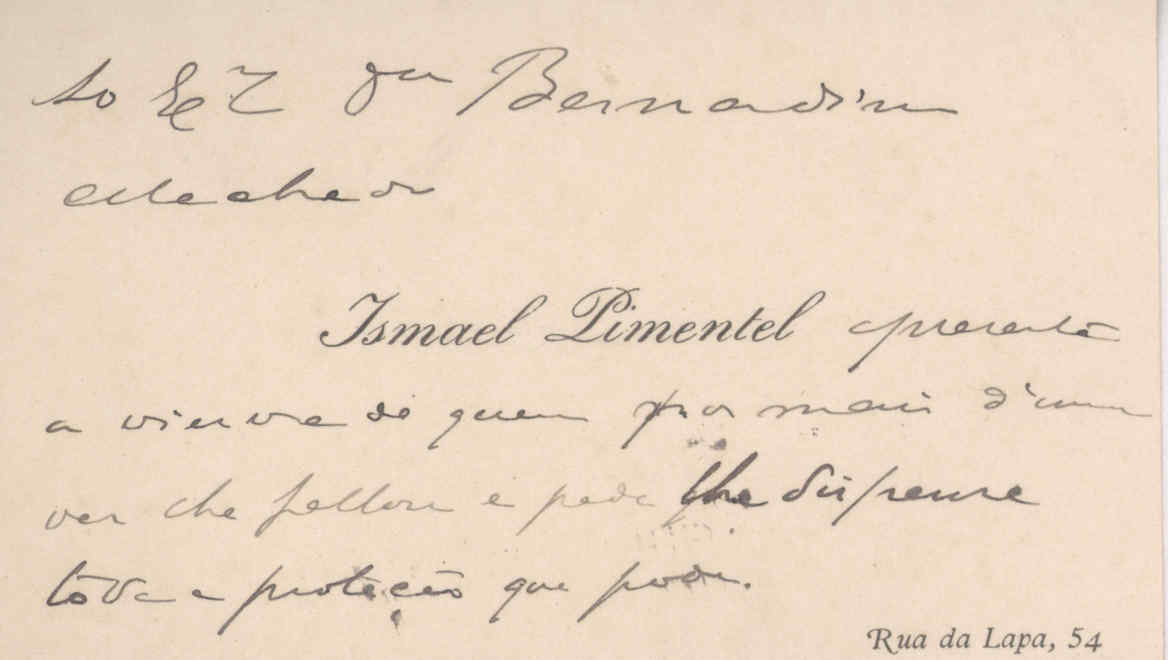 Ao Ex Sr Bernardino
Machado
Ismael Pimentel apresenta
a viuva de quem por mais d'uma
vez lhe fallou e pede lhe dispense
tôda a proteção que pode.
Rua da Lapa, 54